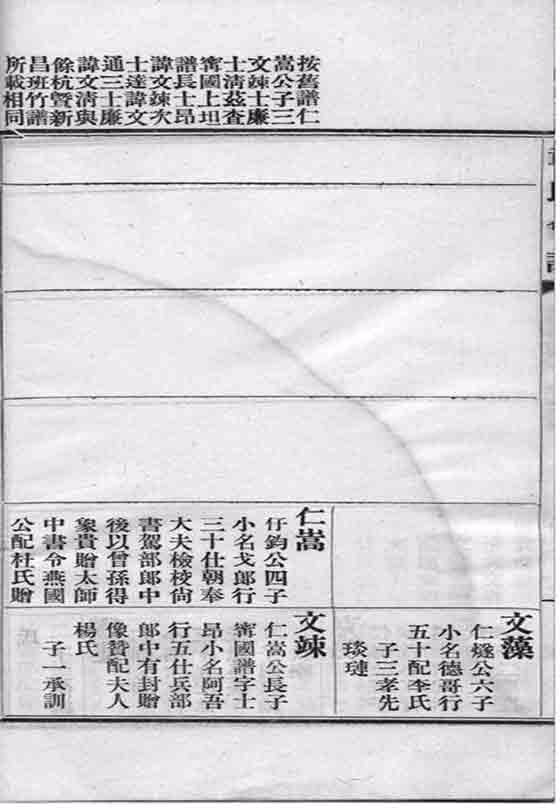 按舊譜仁
嵩公子三
文竦士廉
士淸茲查
甯國上坦
譜長士昂
諱文竦次
士達諱文
通三士廉
諱文淸與
餘杭暨新
昌班竹譜
所載相同
仁嵩
仔鈞公四子
小名戈郞行
三十仕朝奉
大夫檢校尙
書駕部郞中
後以曾孫得
象貴贈太師
中書令燕國
公配杜氏贈
文藻
仁燧公六子
小名德哥行
五十配李氏
子三孝先
琰璉
文竦
仁嵩公長子
甯國譜字士
昂小名阿吾
行五仕兵部
郞中有封贈
像贊配夫人
楊氏
子一承訓